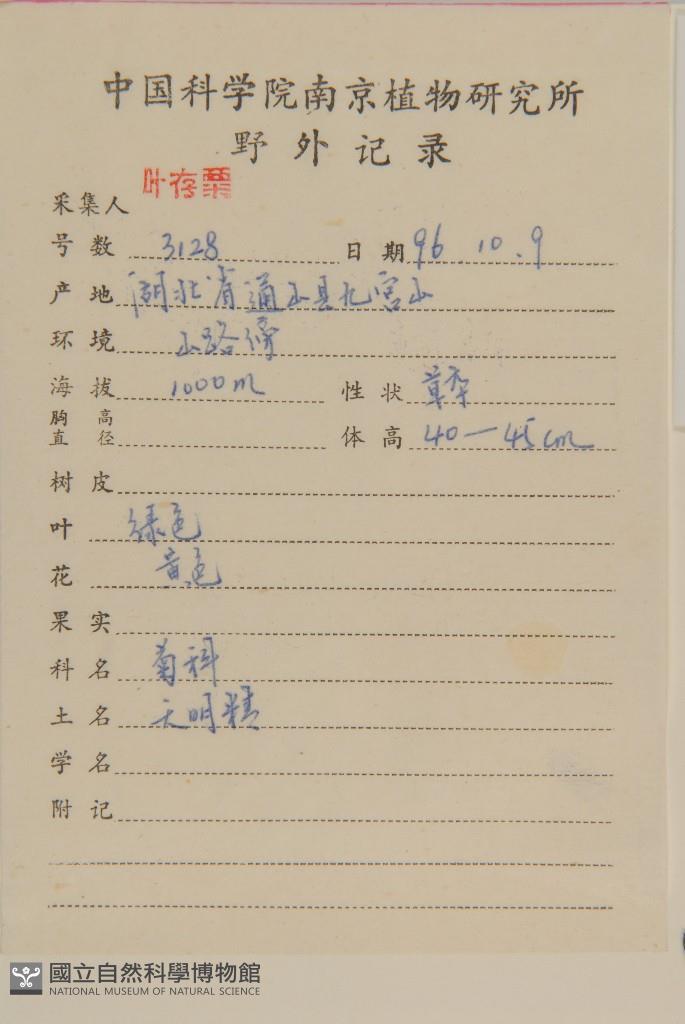 中国科学院南京植物研究所
野外记录
采集人 叶存粟
号数 3128 日期 96.10.9
产地 湖北省通山县九宫山
环境 山路傍
海拔 1000m 性状 草本
胸高直径 体高 40—45cm
树皮
叶 绿色
花 黄色
果实
科名 菊科
土名 天明精
学名
附记
國立自然科學博物館
NATIONAL MUSEUM OF NATURAL SCIENCE